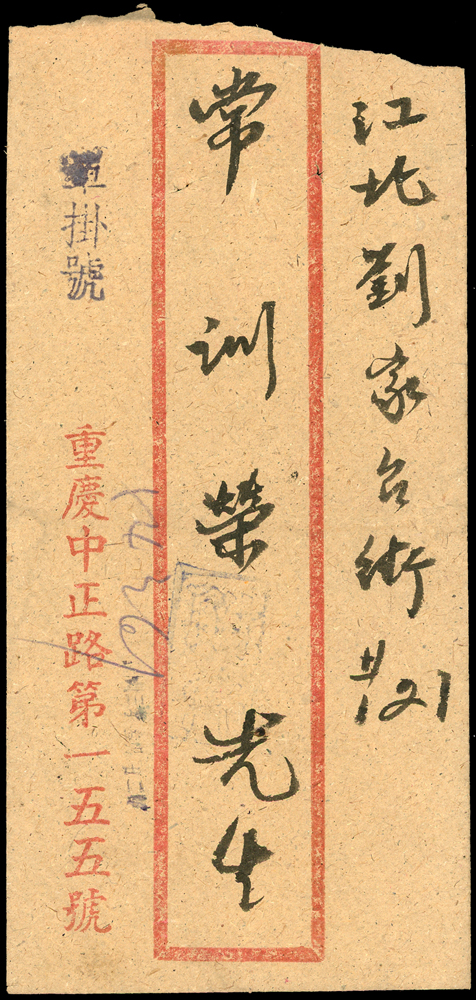 江北劉家台街#121
常訓榮先生
單掛號
重慶中正路第一五五號